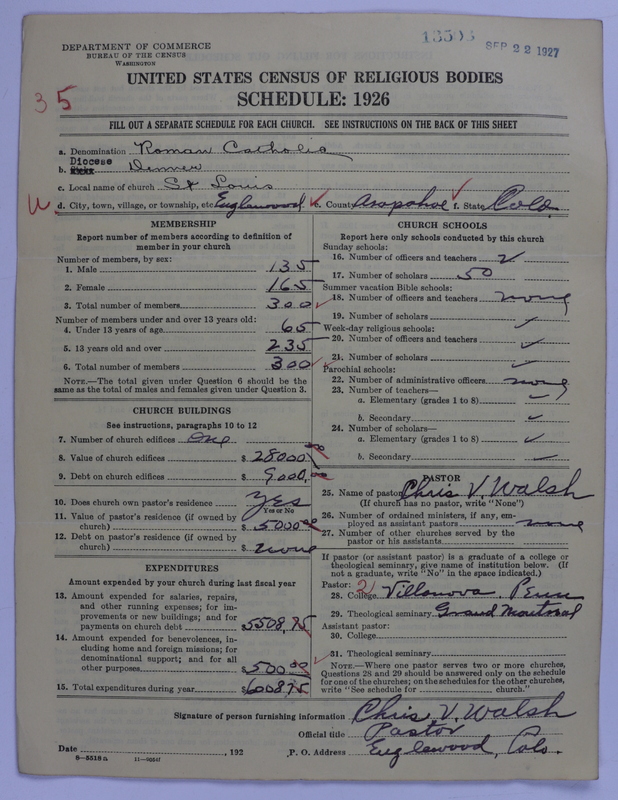 DEPARTMENT OF COMMERCE
BUREAU OF THE CENSUS
WASHINGTON
SEP 22 1927
UNITED STATES CENSUS OF RELIGIOUS BODIES
SCHEDULE: 1926
35
FILL OUT A SEPARATE SCHEDULE FOR EACH CHURCH. SEE INSTRUCTIONS ON THE BACK OF THIS SHEET
a. Denomination Roman Catholic
Diocese
b. Denver
c. Local name of church St Louis
d. City, town, village, or township, etc Englewood e. County Arapahoe f. State Colo
MEMBERSHIP
Report number of members according to definition of
member in your church
Number of members, by sex:
1. Male 135
2. Female 165
3. Total number of members 300
Number of members under and over 13 years old:
4. Under 13 years of age 65
5. 13 years old and over 235
6. Total number of members 300
NOTE.—The total given under Question 6 should be the
same as the total of males and females given under Question 3.
CHURCH BUILDINGS
See instructions, paragraphs 10 to 12
7. Number of church edifices One
8. Value of church edifices $ 28000.00
9. Debt on church edifices $ 9000.00
10. Does church own pastor's residence Yes
Yes or No
11. Value of pastor's residence (if owned by
church) $ 5000.00
12. Debt on pastor's residence (if owned by
church) $ none
EXPENDITURES
Amount expended by your church during last fiscal year
13. Amount expended for salaries, repairs,
and other running expenses; for im-
provements or new buildings; and for
payments on church debt $5508.75
14. Amount expended for benevolences, in-
cluding home and foreign missions; for
denominational support; and for all
other purposes $500.00
15. Total expenditures during year $600875
CHURCH SCHOOLS
Report here only schools conducted by this church
Sunday schools:
16. Number of officers and teachers 2
17. Number of scholars 50
Summer vacation Bible schools:
18. Number of officers and teachers none
19. Number of scholars
Week-day religious schools:
20. Number of officers and teachers
21. Number of scholars
Parochial schools:
22. Number of administrative officers none
23. Number of teachers—
a. Elementary (grades 1 to 8)
b. Secondary
24. Number of scholars—
a. Elementary (grades 1 to 8)
b. Secondary
PASTOR
25. Name of pastor Chris V. Walsh
(If church has no pastor, write "None")
26. Number of ordained ministers, if any, em-
ployed as assistant pastors none
27. Number of other churches served by the
pastor or his assistants
If pastor (or assistant pastor) is a graduate of a college or
theological seminary, give name of institution below. (If
not a graduate, write "No" in the space indicated.)
Pastor:
28. College Villanova, Penn
29. Theological seminary Grand Montreal
Assistant pastor:
30. College
31. Theological seminary
NOTE.—Where one pastor serves two or more churches,
Questions 28 and 29 should be answered only on the schedule
for one of the churches; on the schedules for the other churches,
write "See schedule for church."
Signature of person furnishing information Chris V. Walsh
Official title Pastor
Date , 192 , P. O. Address Englewood, Colo.
8—5518 a